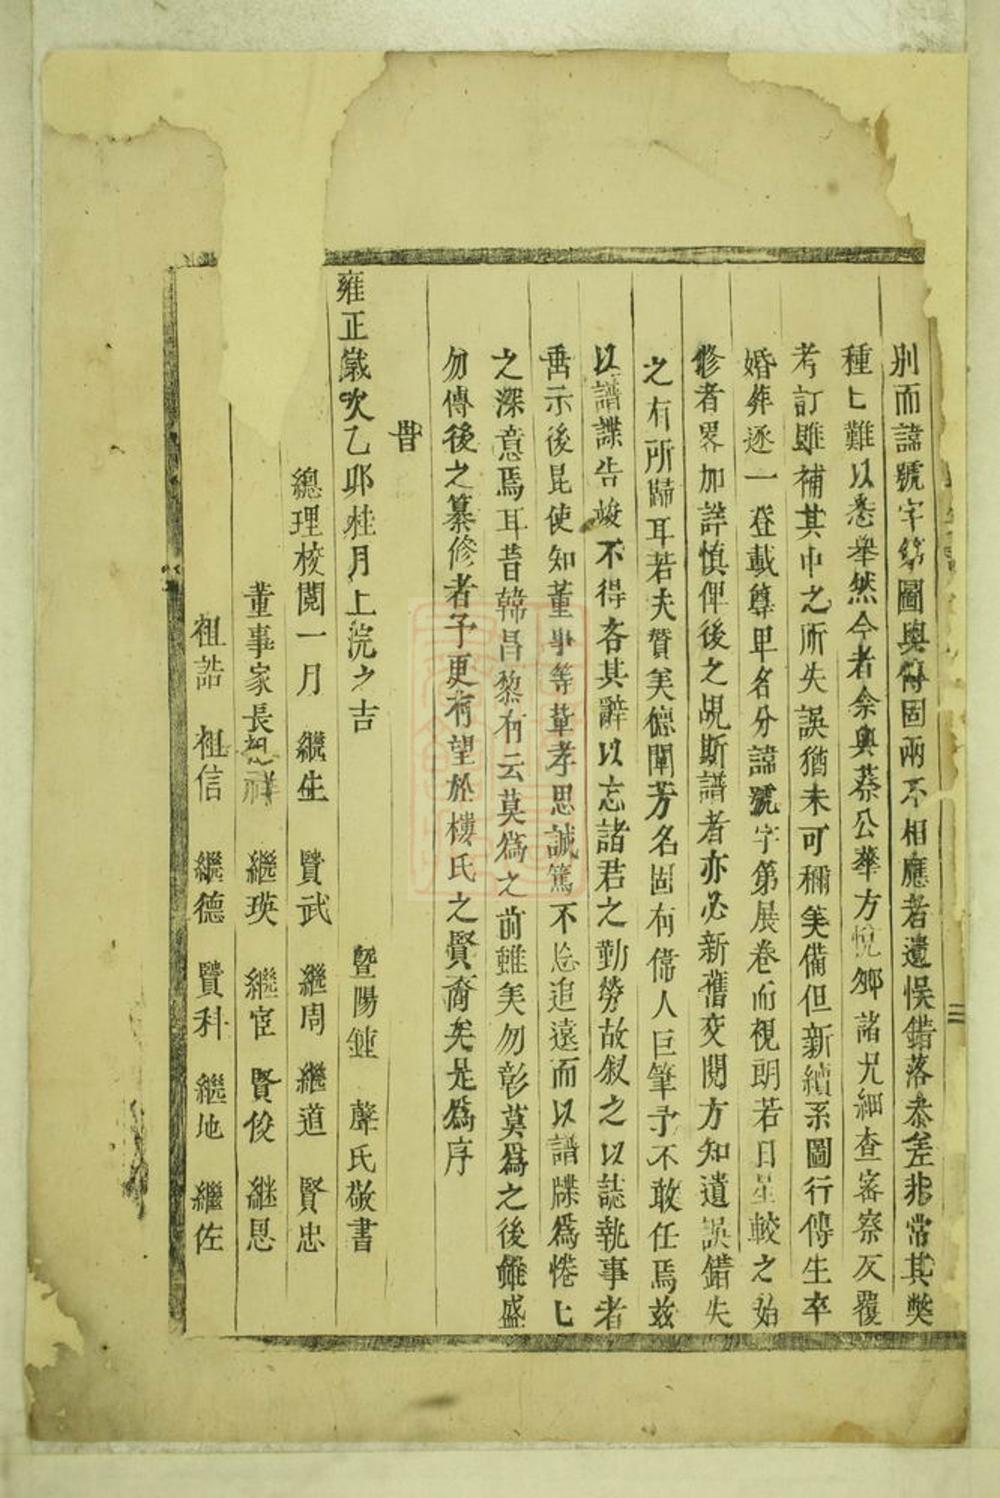 別而諱號字第圖與傳固兩不相應者遺悮錯落叅差非常其獘
種匕難以悉舉然今者余與蔡公華方悅鄉諸兄細查審察反覆
考訂雖補其中之所失誤猶未可稱美備但新續系圖行傳生卒
婚葬逐一登載尊卑名分諱號字第展卷而視明若日星較之始
修者畧加詳慎俾後之覘斯譜者亦必新舊交閱方知遺誤錯失
之有所歸耳若夫贊美德闡芳名固有儒人巨筆予不敢任焉兹
以譜諜告竣不得吝其辭以忘諸君之勤勞故叙之以誌執事者
垂示後昆使知董事等輩孝思誠篤不忘追遠而以譜牒為惓匕
之深意焉耳昔韓昌黎有云莫為之前雖美勿彰莫為之後雖盛
勿傳後之纂修者予更有望於樓氏之賢裔矣是為序
旹
雍正歲次乙卯桂月上浣之吉 暨陽鍾 氏敬書
總理校閱一月 繼生 賢武 繼周 繼道 賢忠
董事家長 祥 繼瑛 繼宦 賢俊 継恩
祖誥 祖信 繼德 賢科 繼地 繼佐
三